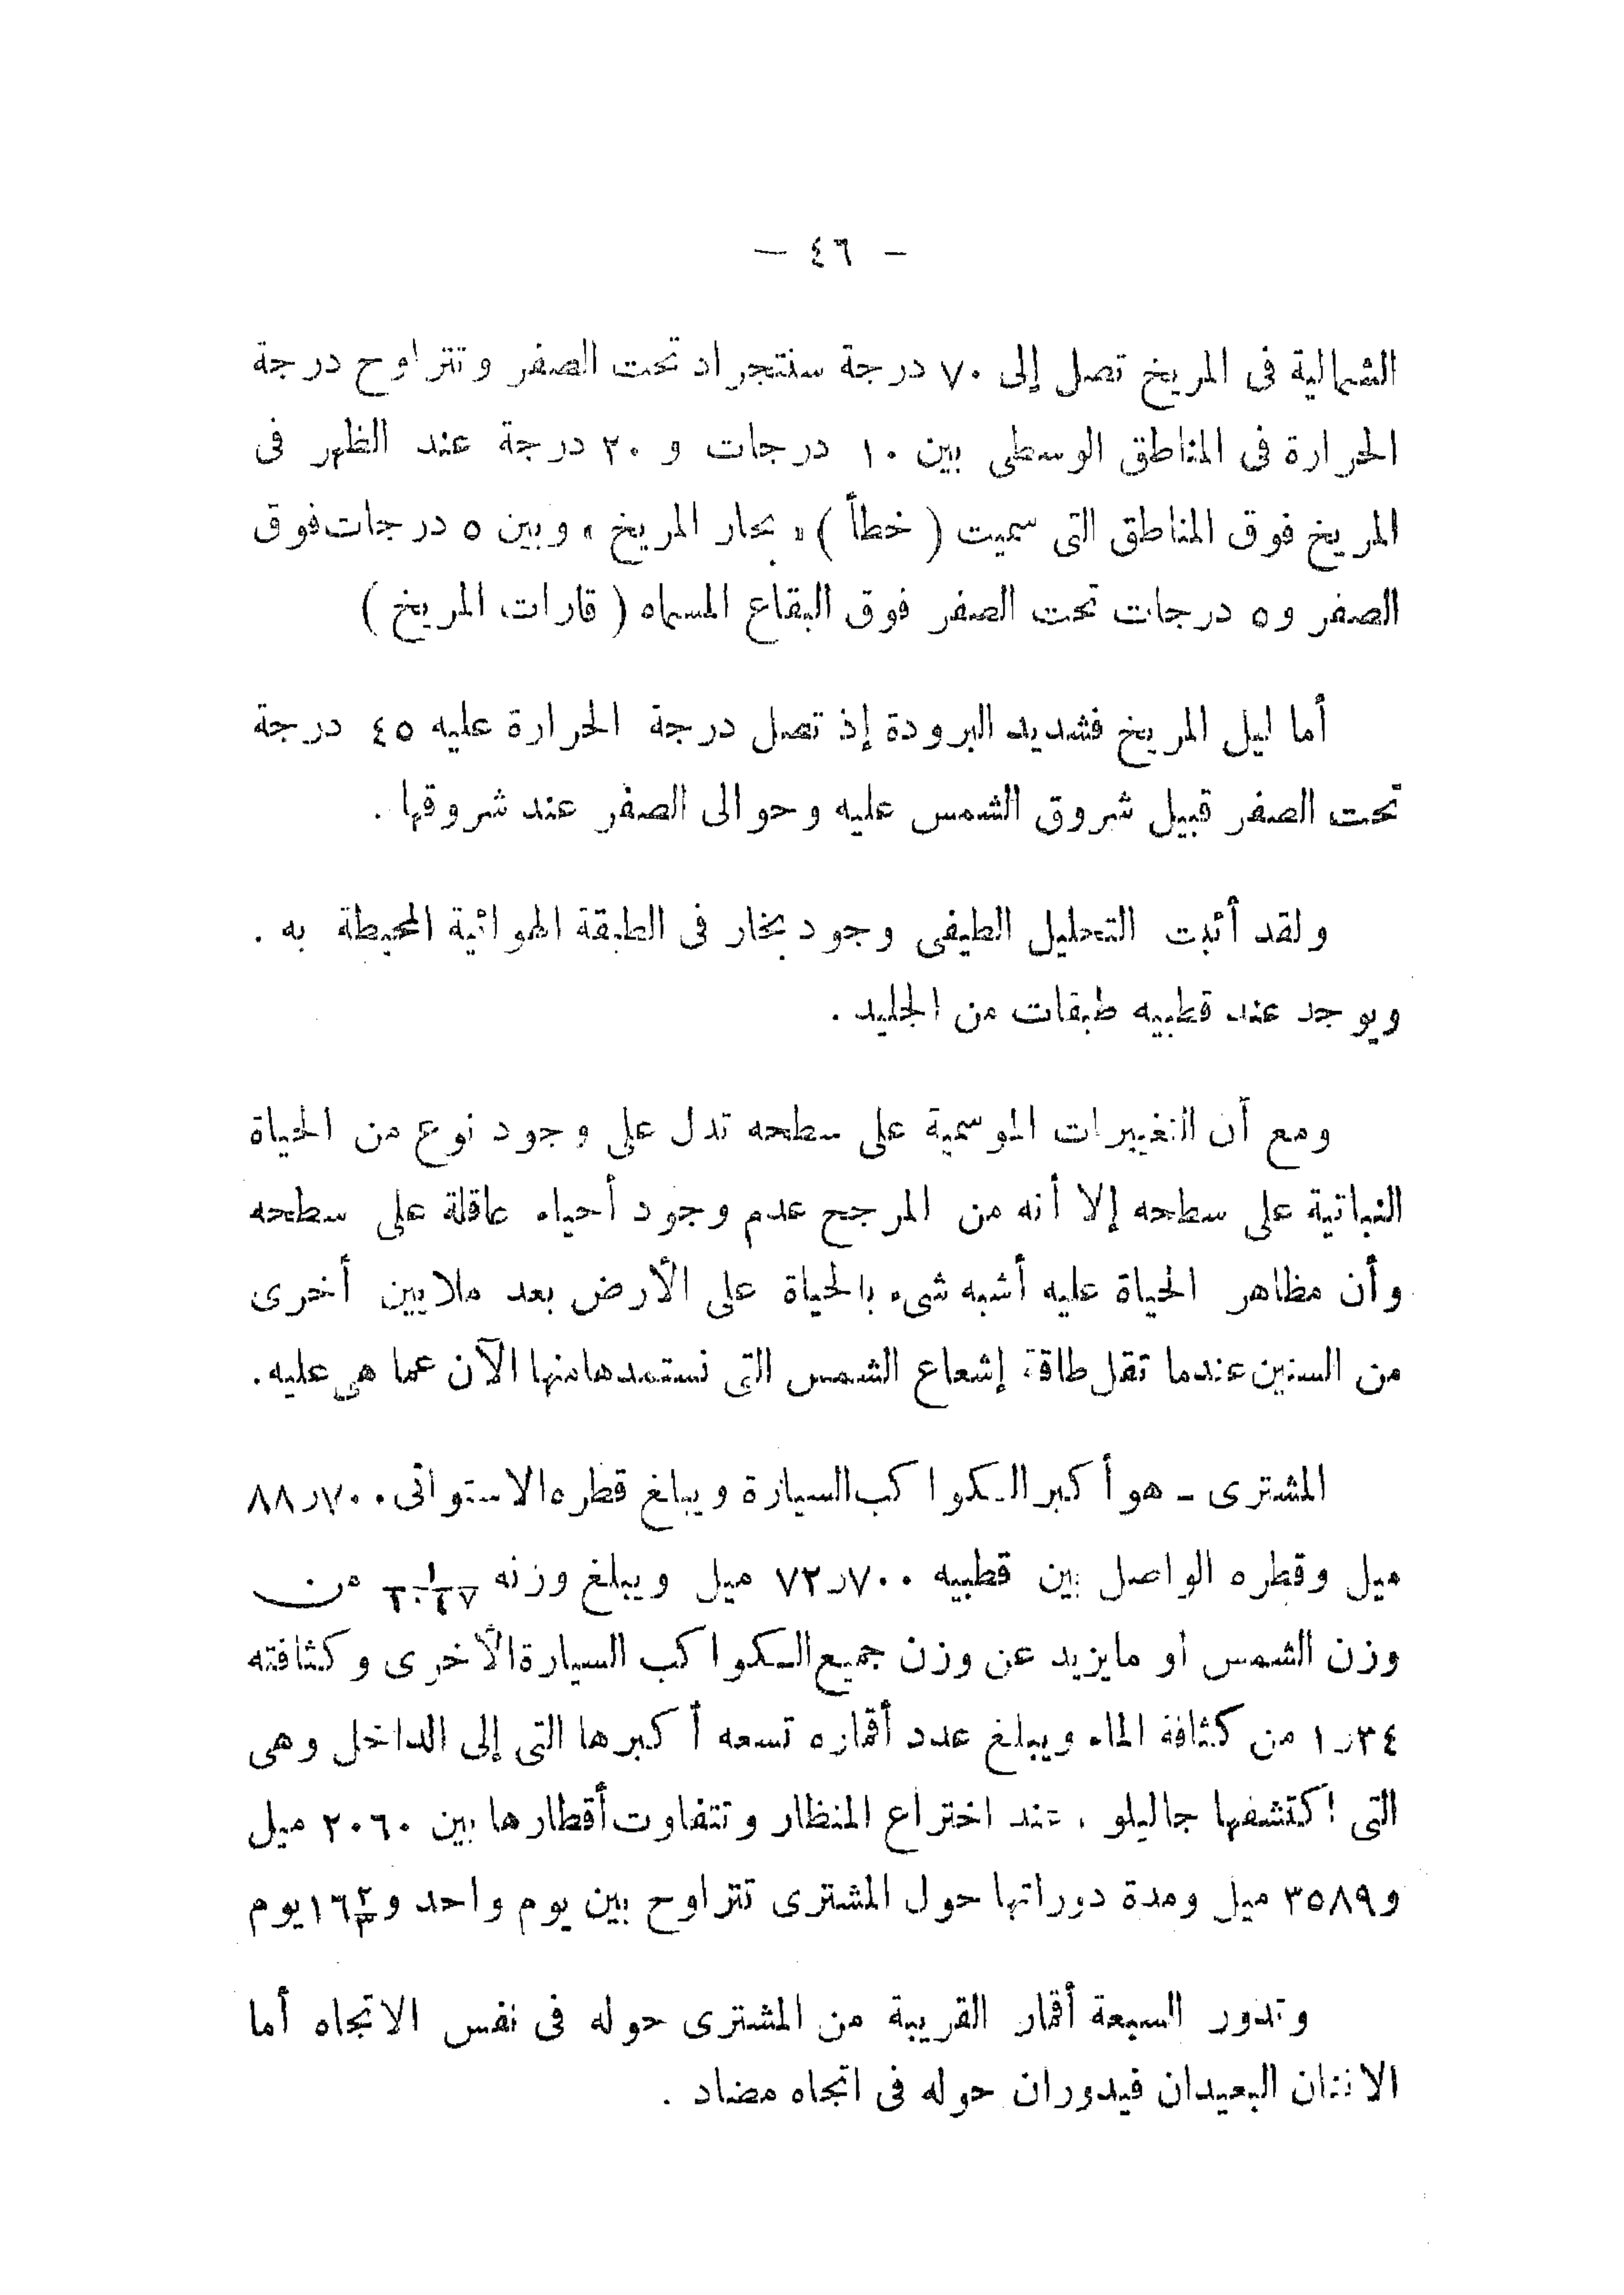 — ٤٦ —
الشمالية فى المريخ تصل إلى ٧٠ درجة سنتجراد تحت الصفر وتتراوح درجة
الحرارة فى المناطق الوسطى بين ١٠ درجات و ٢٠ درجة عند الظهر فى
المريخ فوق المناطق التى سميت ( خطأ ) « بحار المريخ » وبين ٥ درجات فوق
الصفر و٥ درجات تحت الصفر فوق البقاع المسماه ( قارات المريخ )
أما ليل المريخ فشديد البرودة إذ تصل درجة الحرارة عليه ٤٥ درجة
تحت الصفر قبيل شروق الشمس عليه وحوالى الصفر عند شروقها .
ولقد أثبت التحليل الطيفى وجود بخار فى الطبقة الهوائية المحيطة به .
ويوجد عند قطبيه طبقات من الجليد .
ومع أن التغييرات الموسمية على سطحه تدل على وجود نوع من الحياة
النباتية على سطحه إلا أنه من المرجح عدم وجود أحياء عاقلة على سطحه
وأن مظاهر الحياة عليه أشبه شىء بالحياة على الأرض بعد ملايين أخرى
من السنين عندما تقل طاقة إشعاع الشمس التى نستمدها منها الآن عما هى عليه.
المشترى – هو أكبر الكواكب السيارة ويبلغ قطره الاستوائى ٨٨٫٧٠٠
ميل وقطره الواصل بين قطبيه ٧٢٫٧٠٠ ميل ويبلغ وزنه ١/١٠٤٧ من
وزن الشمس أو مايزيد عن وزن جميع الكواكب السيارة الأخرى وكثافته
١٫٣٤ من كثافة الماء ويبلغ عدد أقماره تسعه أكبرها التى إلى الداخل وهى
التى اكتشفها جاليلو ، عند اختراع المنظار وتتفاوت أقطارها بين ٢٠٦٠ ميل
و٣٥٨٩ ميل ومدة دوراتها حول المشترى تتراوح بين يوم واحد و١٦٢/٣ يوم
وتدور السبعة أقمار القريبة من المشترى حوله فى نفس الاتجاه أما
الاثنان البعيدان فيدوران حوله فى اتجاه مضاد .